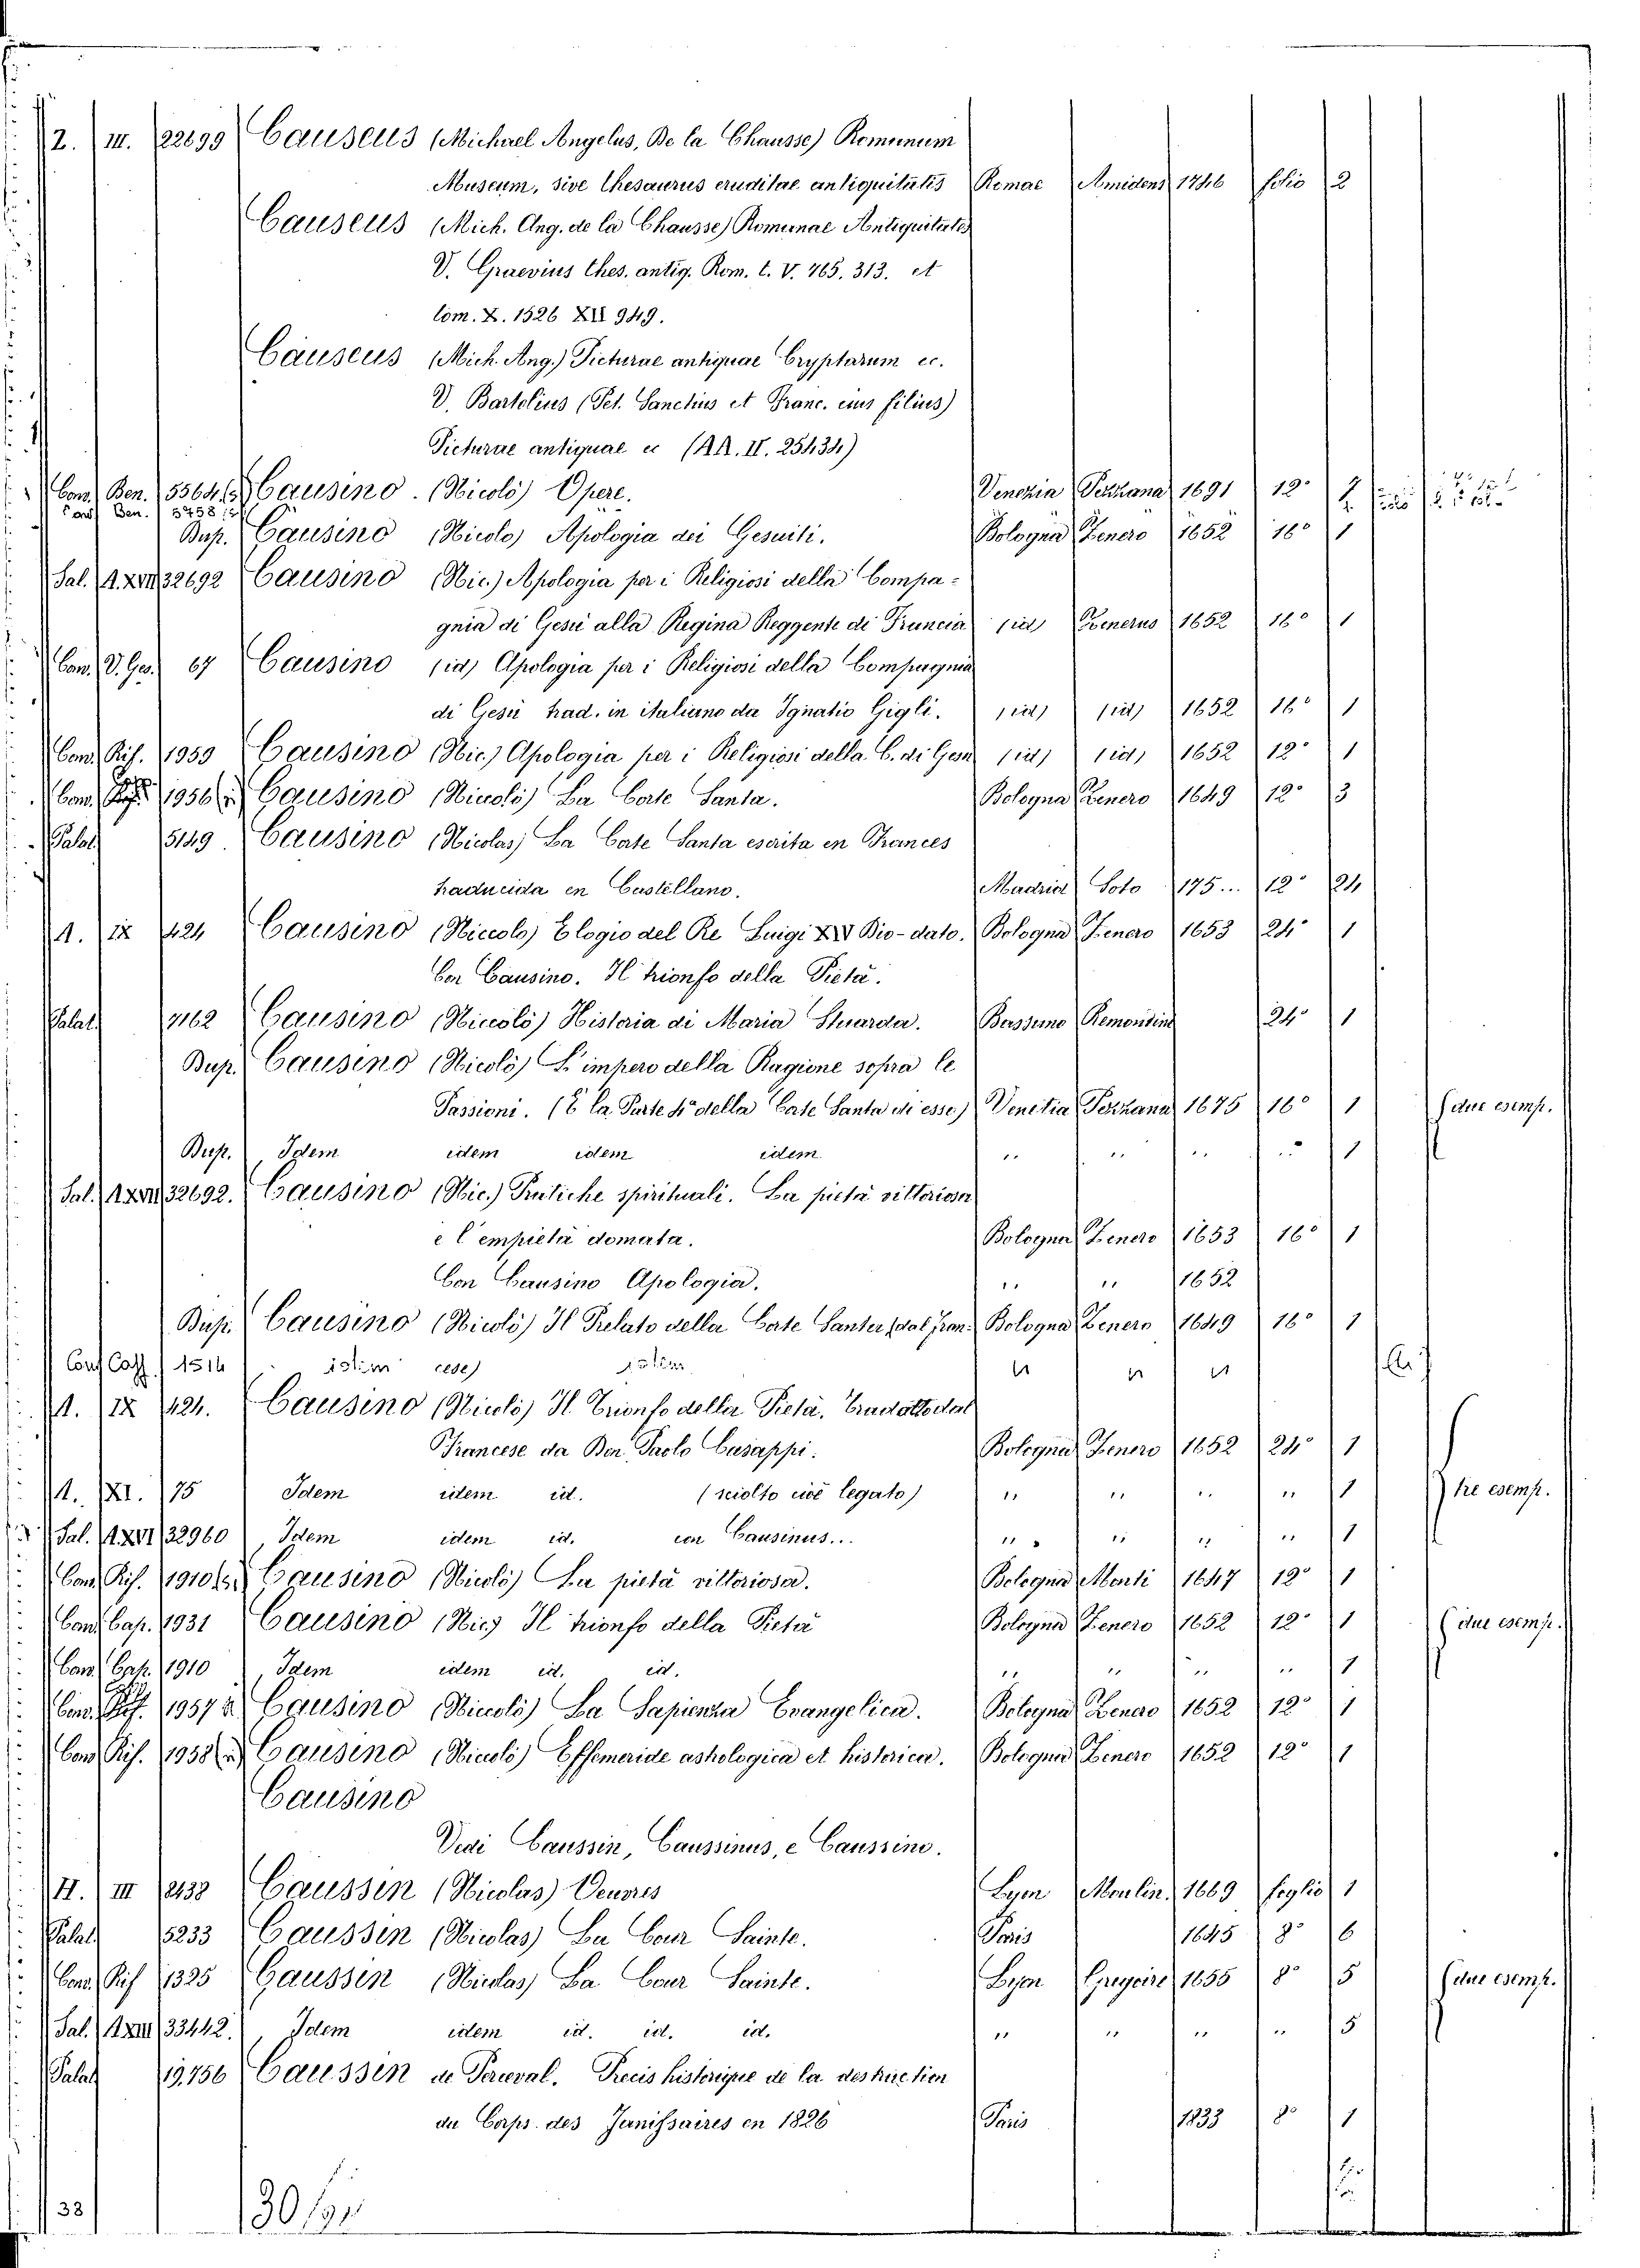 Z. III. 22699 Causeus (Michael Angelus, De la Chausse) Romanum
Museum, sive Thesaurus eruditae antiquitatis Romae Amidens 1746 folio 2
Causeus (Mich. Ang. de la Chausse) Romanae Antiquitates
V. Graevius Thes. antiq. Rom. t. V. 765. 313. et
tom. X. 1526 XII 949.
Causeus (Mich. Ang.) Picturae antiquae Cryptarum ec.
V. Bartolius (Pet. Sanctius et Franc. eius filius)
Picturae antiquae ec (AA. II. 25434)
Conv. Ben. 5564 Causino. (Nicolò) Opere. Venezia Pezzana 1691 12°
Conv. Ben. 5458
Bup. Causino (Nicolò) Apologia dei Gesuiti. Bologna Zenero 1652 16° 1
Sal. A.XVII 32692 Causino (Nic.) Apologia per i Religiosi della Compa-
gnia di Gesù alla Regina Reggente di Francia (id) Zenerus 1652 16° 1
Con. V. Ges. 67 Causino (id) Apologia per i Religiosi della Compagnia
di Gesù trad. in italiano da Ignatio Gigli. (id) (id) 1652 16° 1
Con. Rif. 1959 Causino (Nic.) Apologia per i Religiosi della C. di Gesù (id) (id) 1652 12° 1
Con. 1956 Causino (Nicolò) La Corte Santa. Bologna Zenero 1649 12° 3
Palat. 5149 Causino (Nicolas) La Corte Santa escrita en Frances
traducida en Castellano. Madrid Soto 175... 12° 24
A. IX 424 Causino (Niccolò) Elogio del Re Luigi XIV Dio-dato. Bologna Zenero 1653 24° 1
Con Causino. Il trionfo della Pietà.
Palat. 7162 Causino (Niccolò) Historia di Maria Stuarda. Bassano Remondini 24° 1
Bup. Causino (Nicolò) L'impero della Ragione sopra le
Passioni. (È la Parte 4a della Corte Santa di esso) Venetia Pezzana 1675 16° 1 due esemp.
Bup. Idem idem idem idem " " " " 1
Sal. A.XVII 32692. Causino (Nic.) Pratiche spirituali. La pietà vittoriosa
e l'empietà domata. Bologna Zenero 1653 16° 1
Con Causino Apologia. " " 1652
Bup. Causino (Nicolò) Il Prelato della Corte Santa (dal fran- Bologna Zenero 1649 16° 1
Conv Capp 1514 idem cese) idem " " "
A. IX 424. Causino (Nicolò) Il Trionfo della Pietà. Tradotto dal
Francese da Don Paolo Casappi. Bologna Zenero 1652 24° 1
A. XI. 75 Idem idem id. (sciolto cioè legato) " " " " 1 tre esemp.
Sal. A.XVI 32960 Idem idem id. con Causinus... " " " " 1
Con. Rif. 1910 Causino (Nicolò) La pietà vittoriosa. Bologna Monti 1647 12° 1
Con. Cap. 1931 Causino (Nic.) Il trionfo della Pietà Bologna Zenero 1652 12° 1 due esemp.
Con. Cap. 1910 Idem idem id. id. " " " " 1
Con. Rif. 1957 Causino (Niccolò) La Sapienza Evangelica. Bologna Zenero 1652 12° 1
Con. Rif. 1958 Causino (Niccolò) Effemeride astrologica et historica. Bologna Zenero 1652 12° 1
Causino
Vedi Caussin, Caussinus, e Caussino.
H. III 2438 Caussin (Nicolas) Oeuvres Lyon Moulin. 1669 foglio 1
Palat. 5233 Caussin (Nicolas) La Cour Sainte. Paris 1645 8° 6
Con. Rif 1325 Caussin (Nicolas) La Cour Sainte. Lyon Gregoire 1655 8° 5 due esemp.
Sal. A.XIII 33442. Idem idem id. id. id. " " " " 5
Palat. 19.756 Caussin de Perceval. Precis historique de la destruction
du Corps des Janissaires en 1826 Paris 1833 8° 1
38